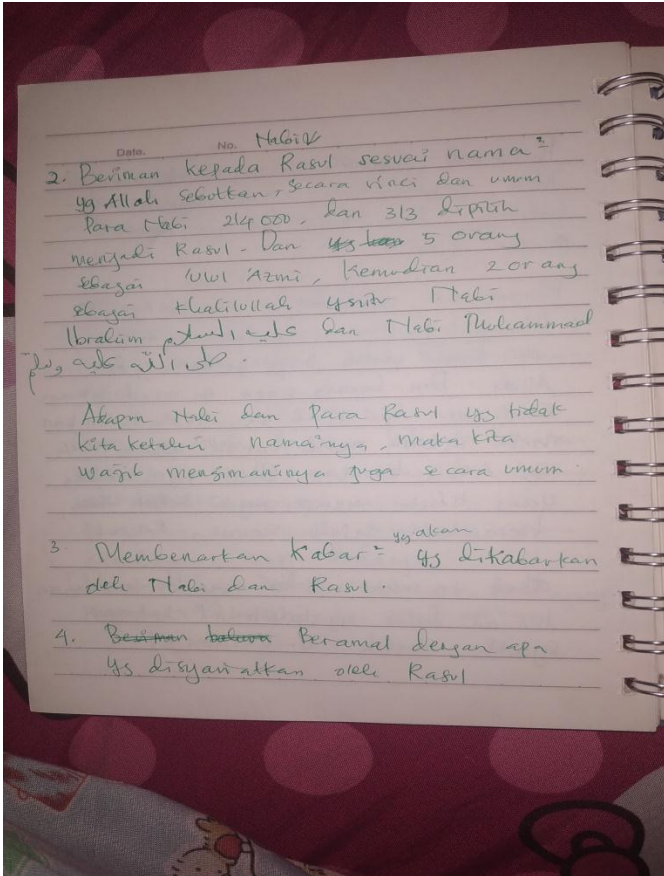 Date. No. Nabi
2. Beriman kepada Rasul sesuai nama²
yg Allah sebutkan, secara rinci dan umum
Para Nabi 214 000, dan 313 dipilih
menjadi Rasul. Dan 5 orang
sebagai 'Ulul 'Azmi, Kemudian 2 orang
sebagai Khalilullah yaitu Nabi
Ibrahim عليه السلام dan Nabi Muhammad
صلى الله عليه وسلم.
Adapun Nabi dan Para Rasul yg tidak
kita ketahui nama²nya, maka kita
wajib mengimaninya juga secara umum.
yg akan
3. Membenarkan Kabar² yg dikabarkan
oleh Nabi dan Rasul.
4. Beriman bahwa Beramal dengan apa
yg disyariatkan oleh Rasul